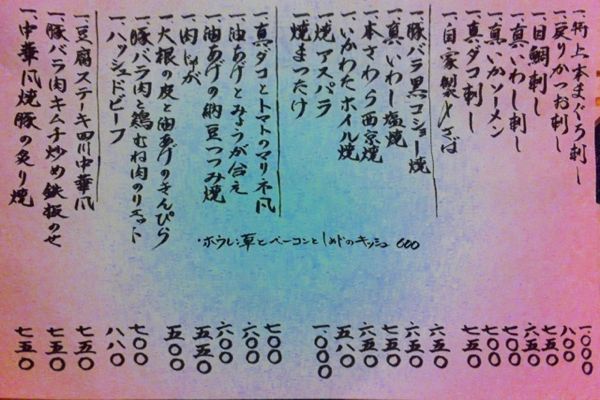 一、特上本まぐろ刺し 一〇〇〇
一、戻りかつお刺し 八〇〇
一、目鯛刺し 七五〇
一、真いわし刺し 六五〇
一、真いかソーメン 七〇〇
一、真ダコ刺し 七〇〇
一、自家製〆さば 七五〇
一、豚バラ黒コショー焼 六五〇
一、真いわし塩焼 六五〇
一、本さわら西京焼 七五〇
一、いかわたホイル焼 六五〇
一、焼アスパラ 五八〇
一、焼まつたけ 一、〇〇〇
一、真ダコとトマトのマリネ風 七〇〇
一、油あげとみょうが合え 六〇〇
一、油あげの納豆つつみ焼 六〇〇
一、肉じゃが 五五〇
一、大根の皮と油あげのきんぴら 五〇〇
一、豚バラ肉と鶏むね肉のリエット 七〇〇
一、ハッシュドビーフ 八八〇
一、豆腐ステーキ四川中華風 七五〇
一、豚バラ肉キムチ炒め鉄板のせ 七五〇
一、中華風焼豚の炙り焼 七五〇
・ホウレン草とベーコンとしめじのキッシュ 600